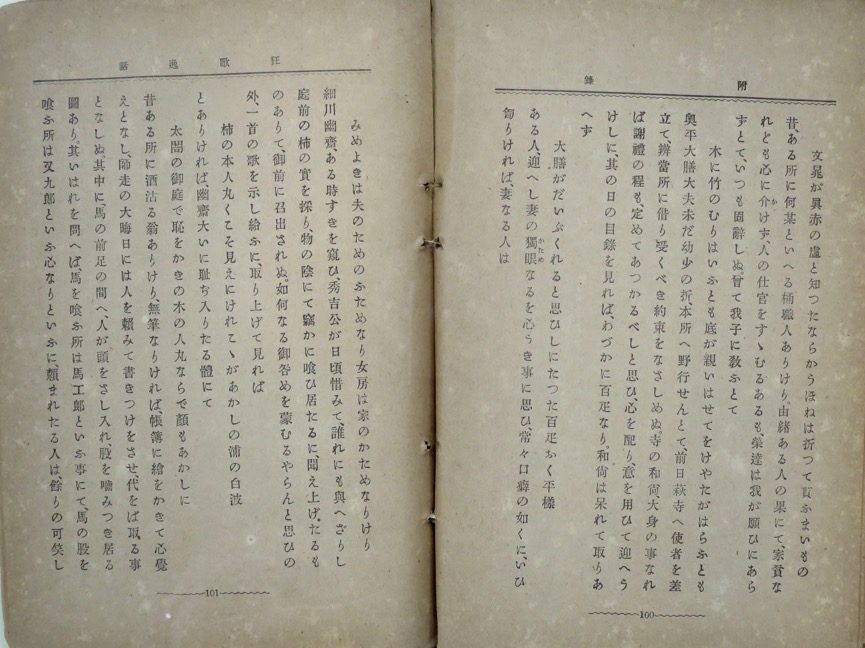 附錄
文晁が異赤の虛と知つたならかうほねは折つて買ふまいもの
昔、ある所に何某といへる桶職人ありけり、由緒ある人の果にて、家貧な
れども心に介けず、人の仕官をすゝむるあるも、榮達は我が願ひにあら
ずとて、いつも固辭しぬ、嘗て我子に敎ふとて
木に竹のむりはいふとも庭が親いはせてをけやたがはらふとも
奧平大膳大夫未だ幼少の折、本所へ野行せんとて、前日萩寺へ使者を差
立て、辨當所に借り受くべき約束をなさしめぬ。寺の和尙、大身の事なれ
ば謝禮の程も、定めてあつかるべしと思ひ、心を配り、意を用ひて迎へう
けしに、其の日の目錄を見れば、わづかに百疋なり。和尙は呆れて取りあ
へず
大膳がだいぶくれると思ひしにたつた百疋おく平樣
ある人、迎へし妻の獨眼なるを心うき事に思ひ、常々口癖の如くに、いひ
かため
か
罵りければ、妻なる人は
100
狂歌逸話
みめよきは夫のためのふためなり女房は家のかためなりけり
細川幽齋、ある時すきを窺ひ、秀吉公が日頃惜みて、誰れにも與へざりし
庭前の柿の實を採り、物の陰にて竊かに喰ひ居たるに、聞え上げたるも
のありて、御前に召出されぬ。如何なる御咎めを蒙むるやらんと思ひの
外、一首の歌を示し給ふに、取り上げて見れば
柿の本人丸くこそ見えにけれこゝがあかしの浦の白波
とありければ幽齋大いに耻ぢ入りたる體にて
太閤の御庭で恥をかきの木の人丸ならで顏もあかしに
昔ある所に酒沽る翁ありけり、無筆なりければ、帳簿に繪をかきて心覺
えとなし、師走の大晦日には人を賴みて書きつけをさせ、代をば取る事
となしぬ。其中に、馬の前足の間へ、人が頭をさし入れ、股を嚙みつき居る
圖あり。其いはれを問へば、馬を喰ふ所は馬工郞といふ事にて、馬の股を
喰ふ所は又九郞といふ心なりといふに、賴まれたる人は、餘りの可笑し
101